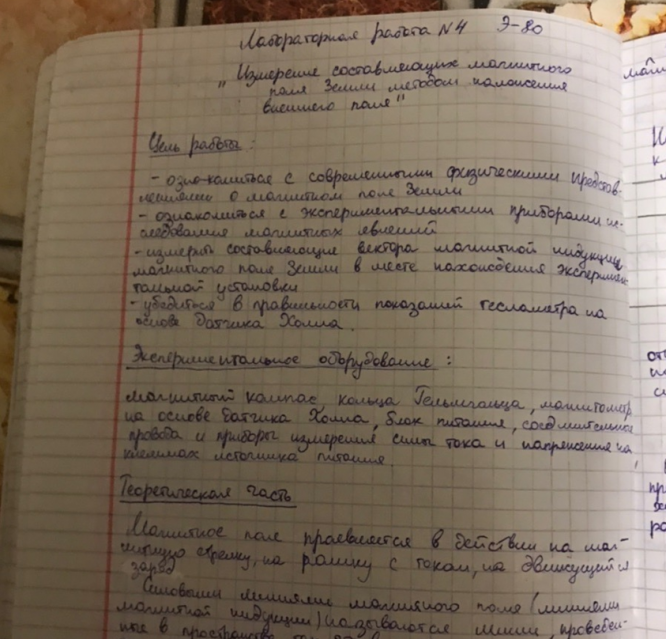 Лабораторная работа №4 Э-80
"Измерение составляющих магнитного
поля Земли методом наложения
внешнего поля"
Цель работы:
- ознакомиться с современными физическими представ-
лениями о магнитном поле Земли
- ознакомиться с экспериментальными приборами ис-
следования магнитных явлений
- измерить составляющие вектора магнитной индукции
магнитного поля Земли в месте нахождения эксперимен-
тальной установки
- убедиться в правильности показаний тесламетра на
основе датчика Холла.
Экспериментальное оборудование:
магнитный компас, кольца Гельмгольца, магнитометр
на основе датчика Холла, блок питания, соединительные
провода и приборы измерения силы тока и напряжения на
клеммах источника питания.
Теоретическая часть
Магнитное поле проявляется в действии на маг-
нитную стрелку, на рамку с током, на движущийся
заряд
Силовыми линиями магнитного поля (линиями
магнитной индукции) называются линии, проведен-
ные в пространстве